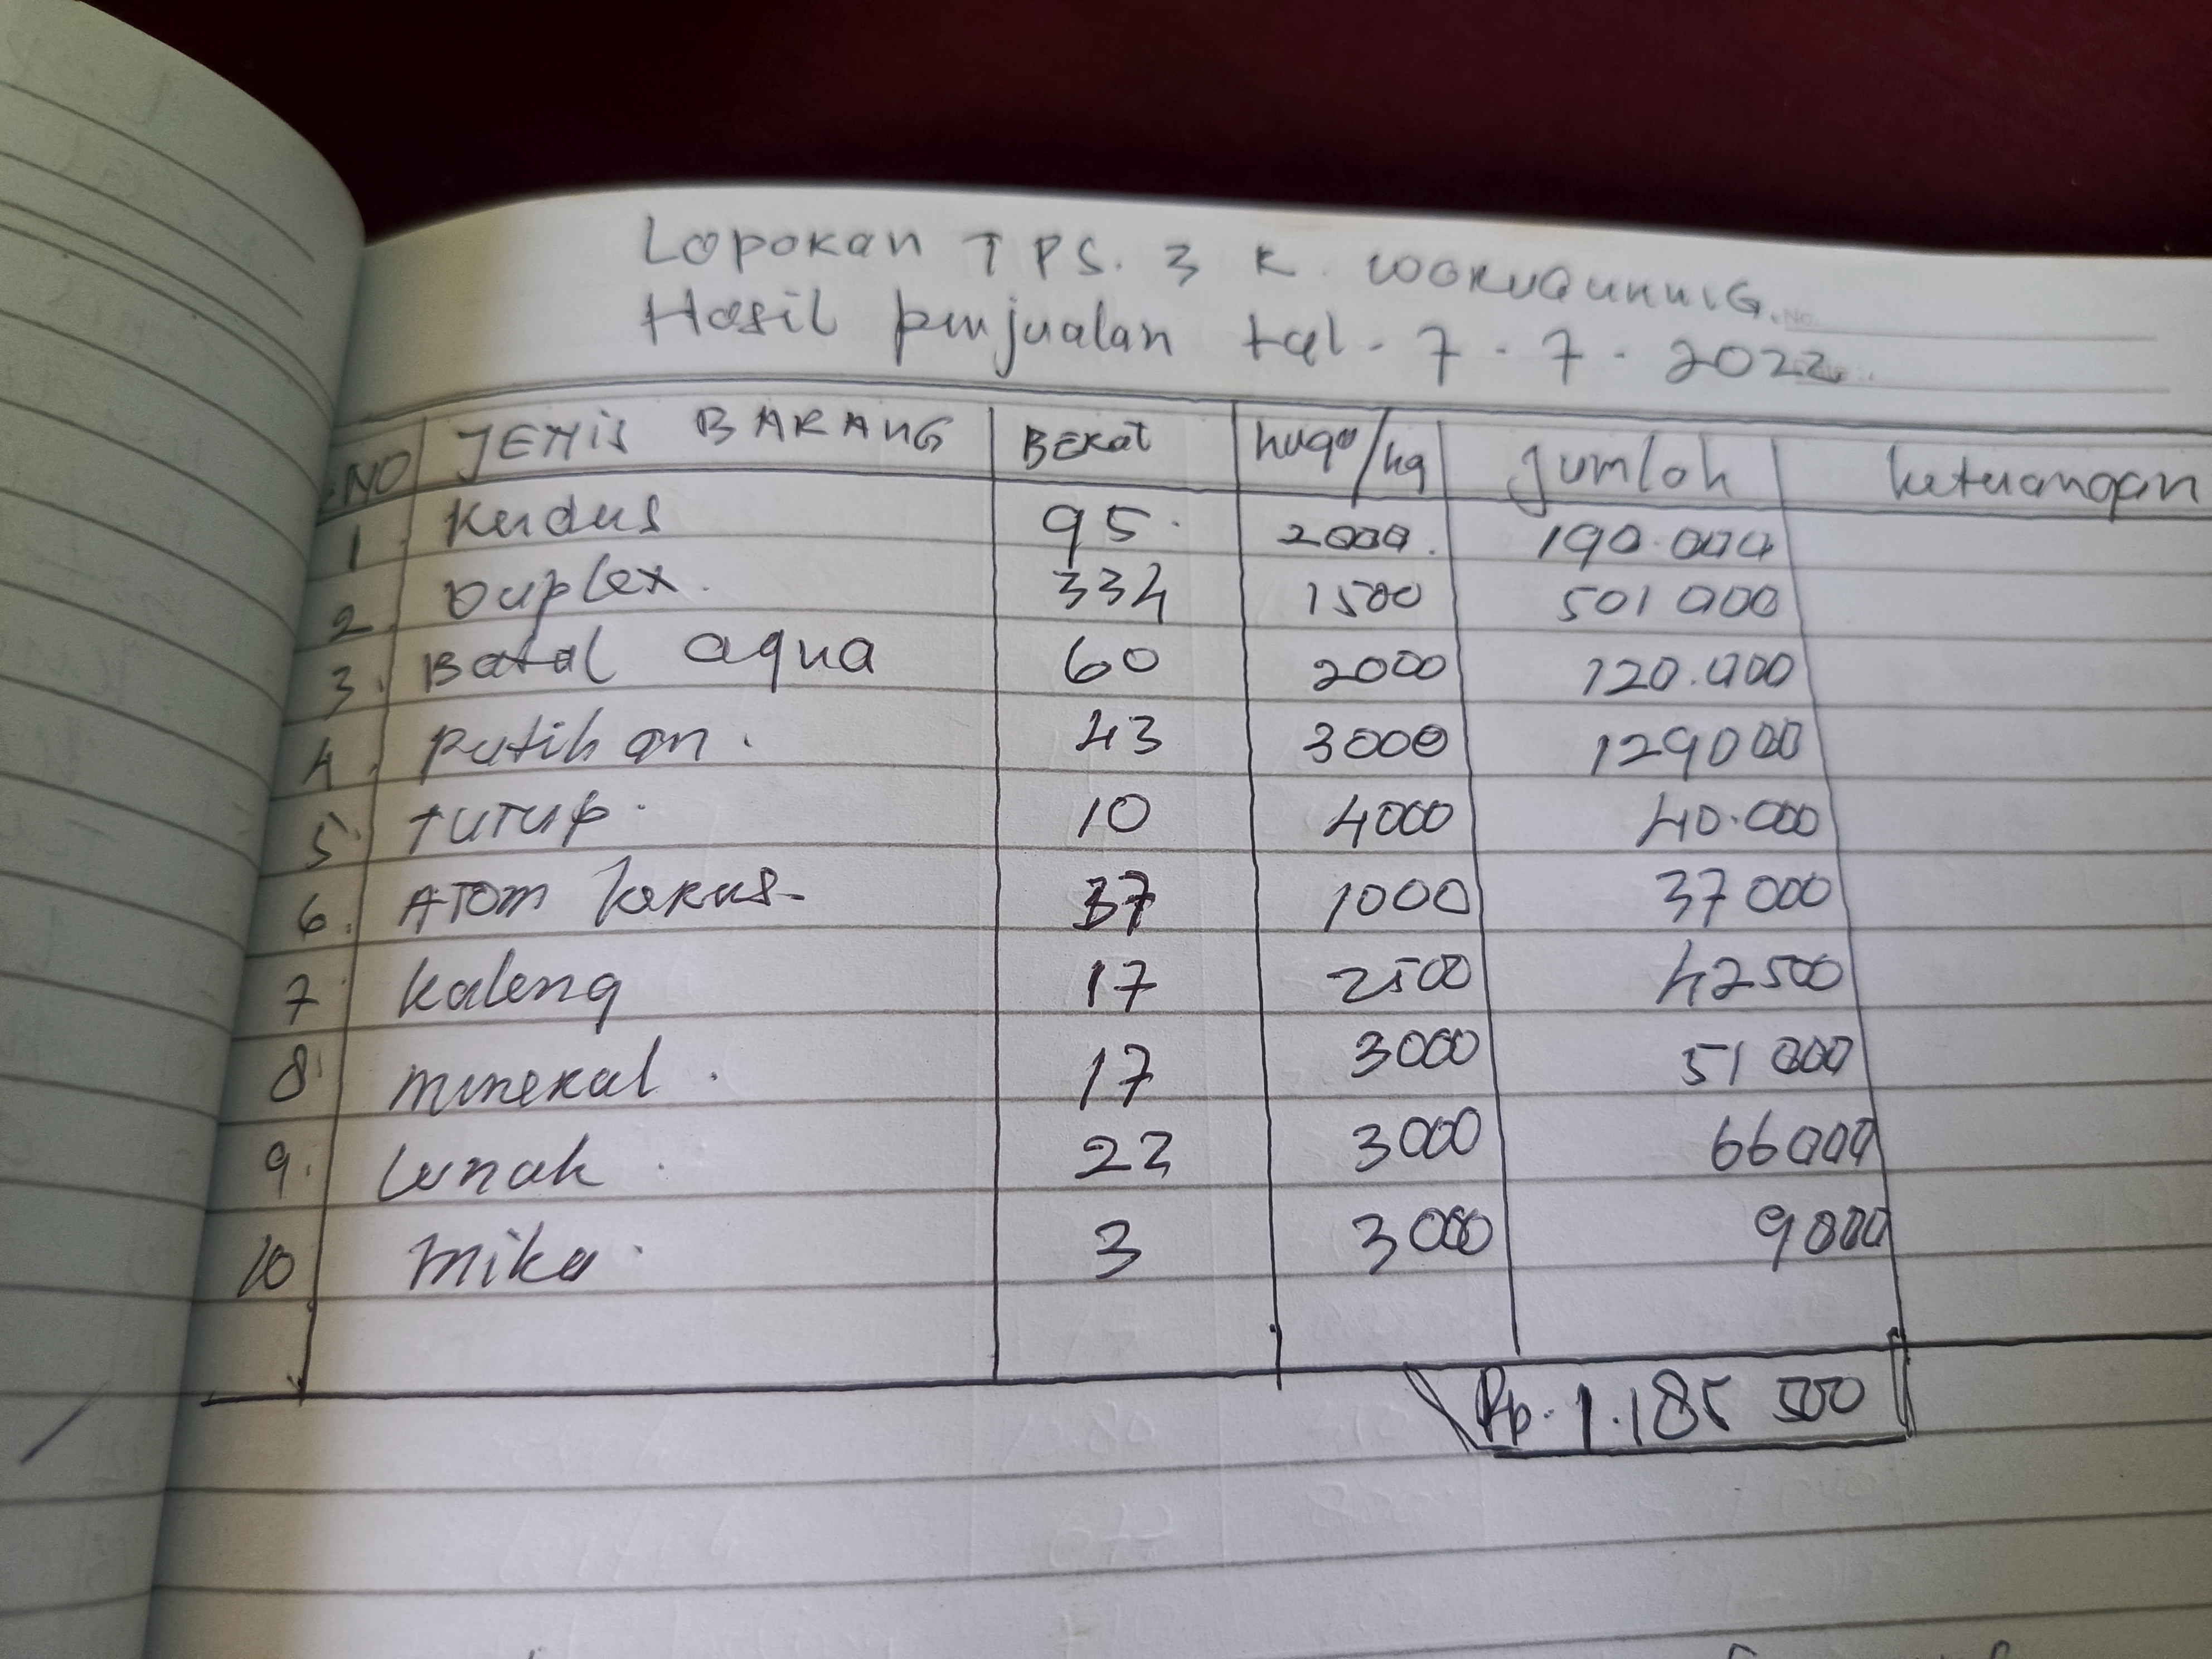 Laporan TPS. 3 R. WARUGUNUNG.
Hasil penjualan tgl. 7. 7. 2022
NO JENIS BARANG BERAT harga/kg Jumlah keterangan
1. Kardus 95. 2000. 190.000
2. Duplex. 334 1500 501 000
3. Botol aqua 60 2000 120.000
4. putihan. 43 3000 129000
5. TUTUP. 10 4000 40.000
6. ATOM kerus- 37 1000 37 000
7. kaleng 17 2500 42500
8. mineral. 17 3000 51 000
9. Lunak. 22 3000 66000
10 mika. 3 3000 9000
Rp. 1.185 500